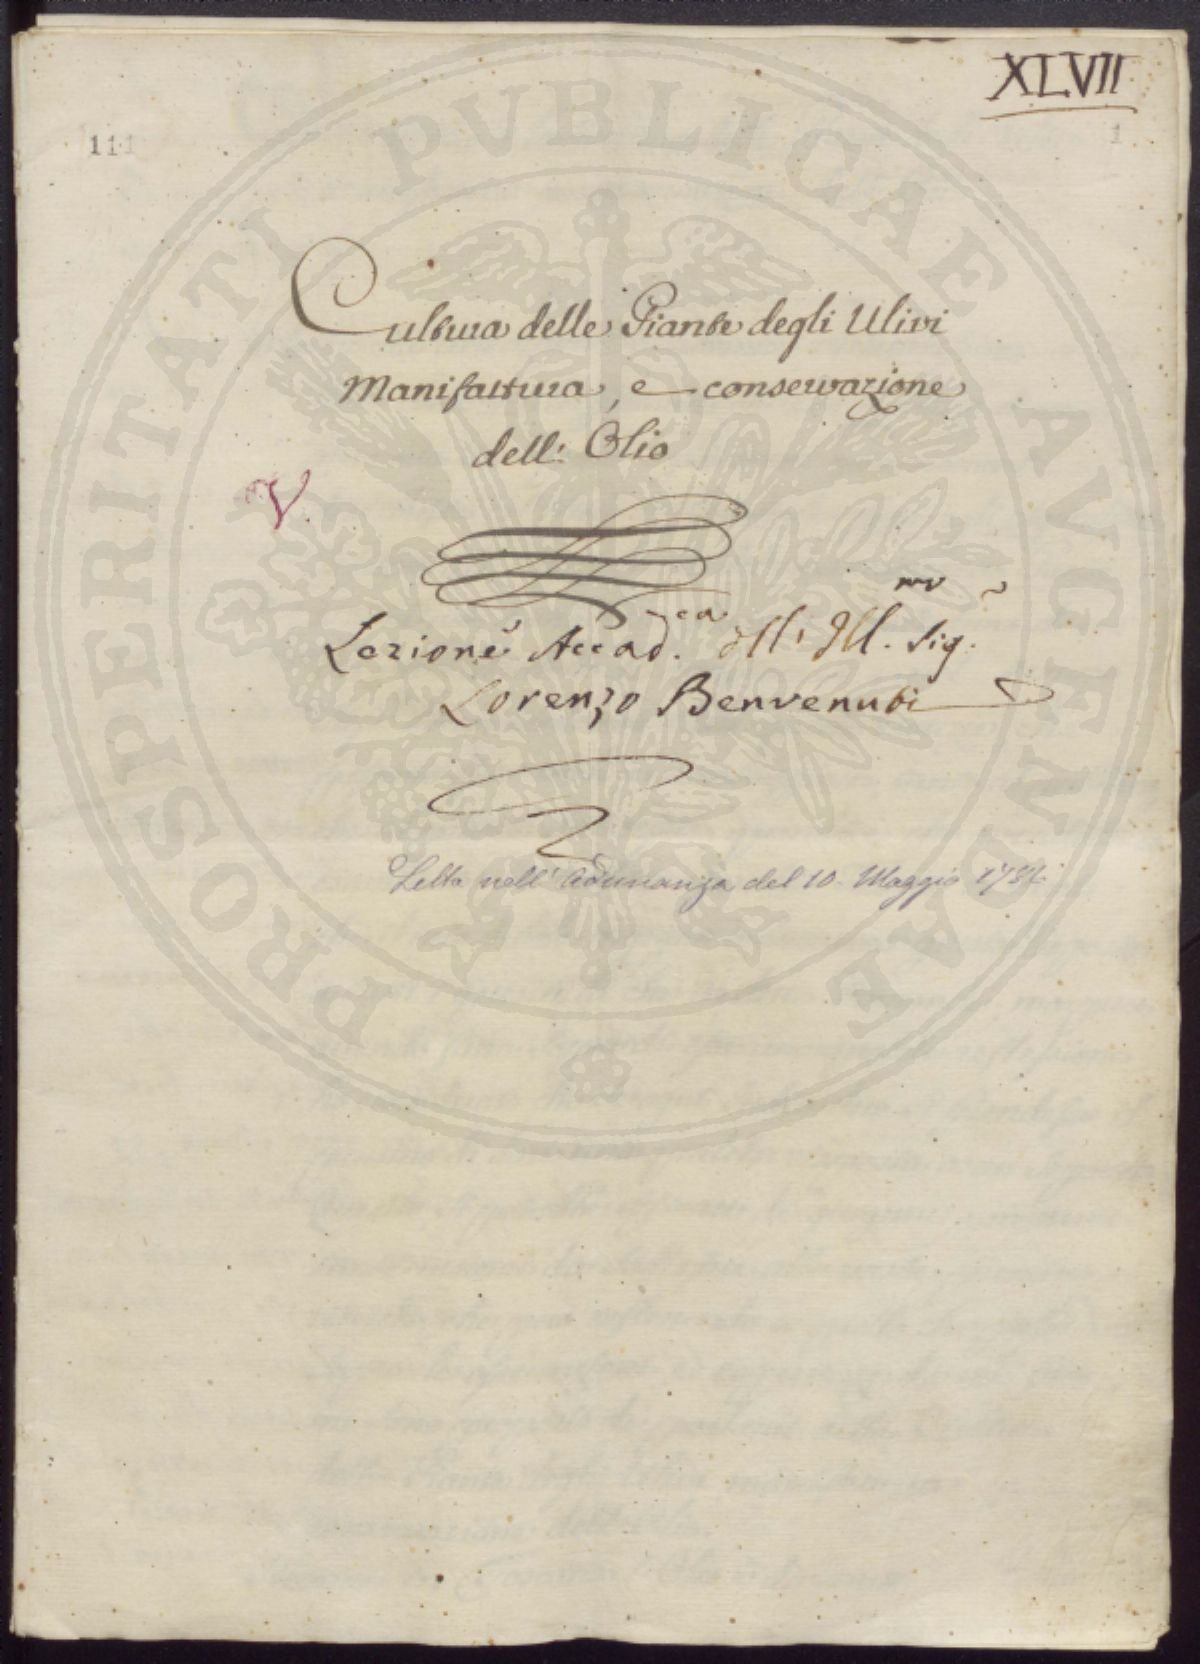 XLVII
111
1
Cultura delle Piante degli Ulivi
Manifattura, e conservazione
dell' Olio
V
Lezione Accad.ca dell' Ill.mo Sig.
Lorenzo Benvenuti
Letta nell' Adunanza del 10. Maggio
PROSPERITATI PVBLICAE AVGENDAE